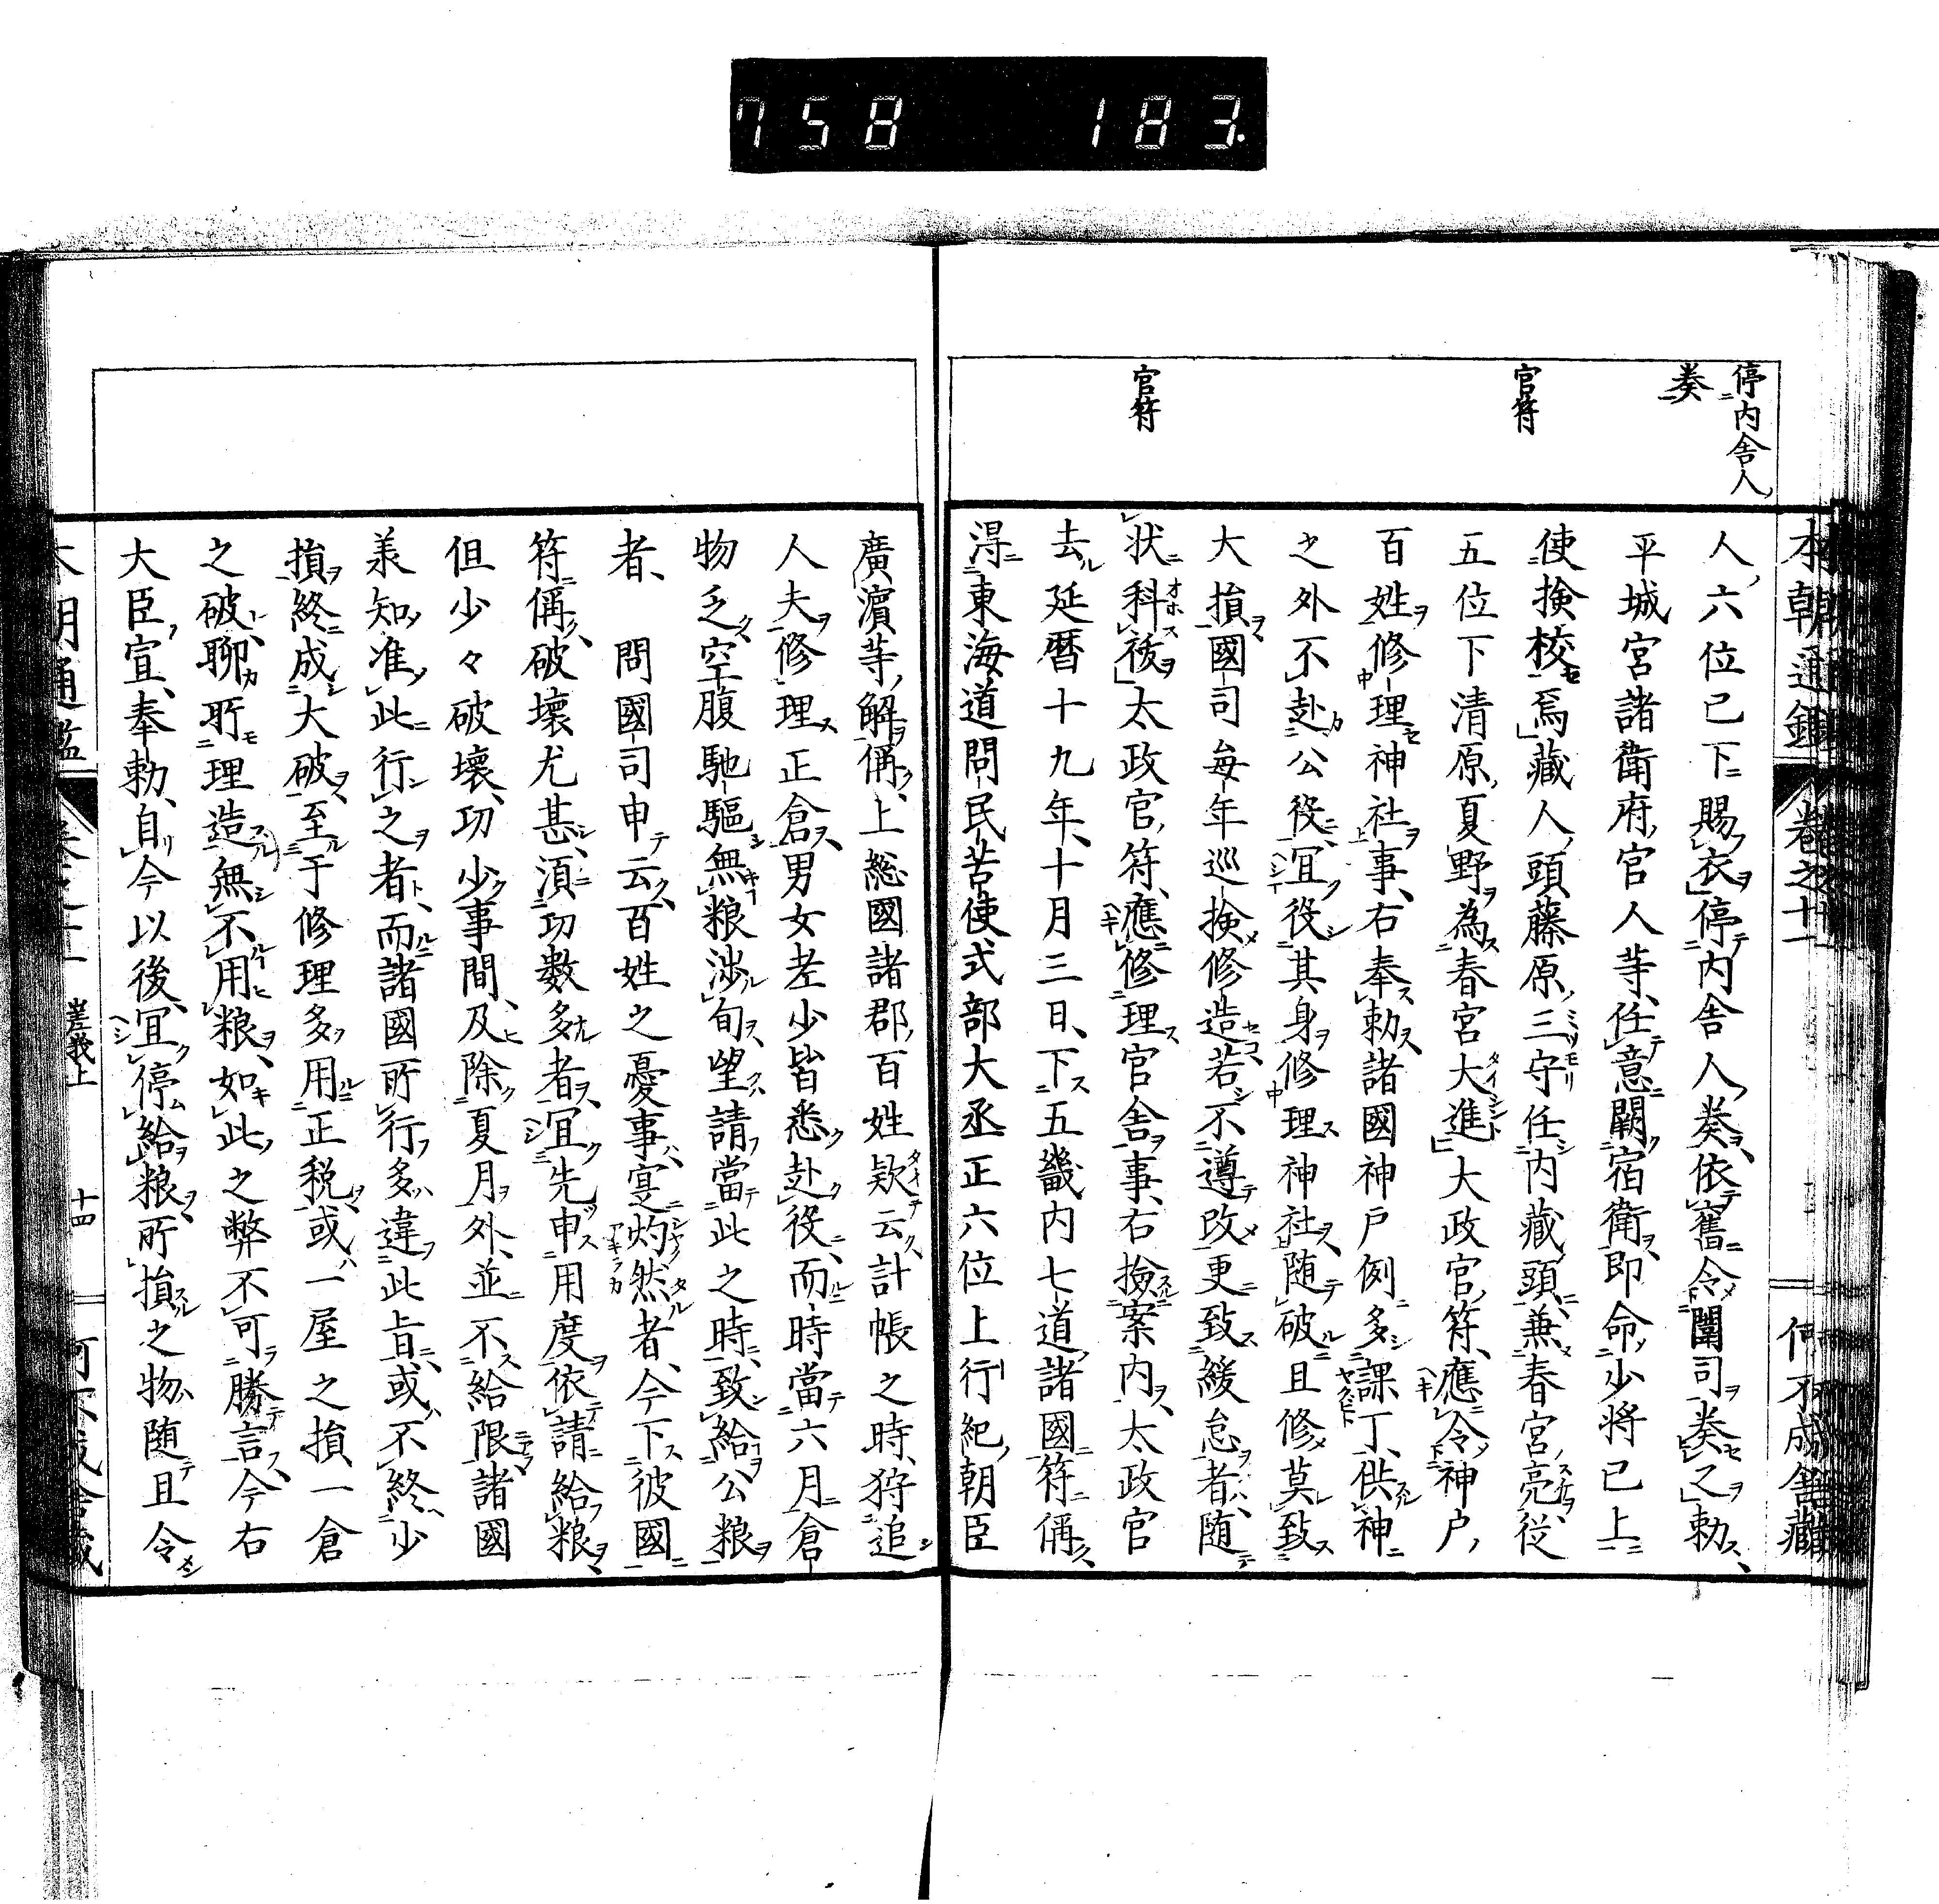 758 183.
停内舎人
奏
官符
官符
本朝通鑑 卷之廿一
人六位已下賜衣停内舎人奏依舊令闈司奏之勅
平城宮諸衛府官人等任意闕宿衛即命少将已上
使撿校焉藏人頭藤原三守任内藏頭兼春宮亮從
五位下清原夏野為春宮大進大政官符應令神戸
百姓修理神社事右奉勅諸國神戸例多課丁供神
之外不赴公役冝役其身修理神社随破且修莫致
大損國司毎年巡撿修造若不遵改更致緩怠者随
状科祓太政官符應修理官舎事右撿案内太政官
去延暦十九年十月三日下五畿内七道諸國符偁
淂東海道問民苦使式部大丞正六位上行紀朝臣
廣濵等解偁上総國諸郡百姓欵云計帳之時狩追
人夫修理正倉男女老少皆悉赴役而時當六月倉
物乏空腹馳驅無粮渉旬望請當此之時致給公粮
者 問國司申云百姓之憂事寔灼然者今下彼國
符偁破壊尤甚湏功數多者冝先申用度依請給粮
但少々破壊功少事間及除夏月外並不給限諸國
羕知准此行之者而諸國所行多違此㫖或不終少
損終成大破至于修理多用正税或一屋之損一倉
之破聊㪽理造無不用粮如此之弊不可勝言今右
大臣宣奉勅自今以後冝停給粮所損之物随且令
十四